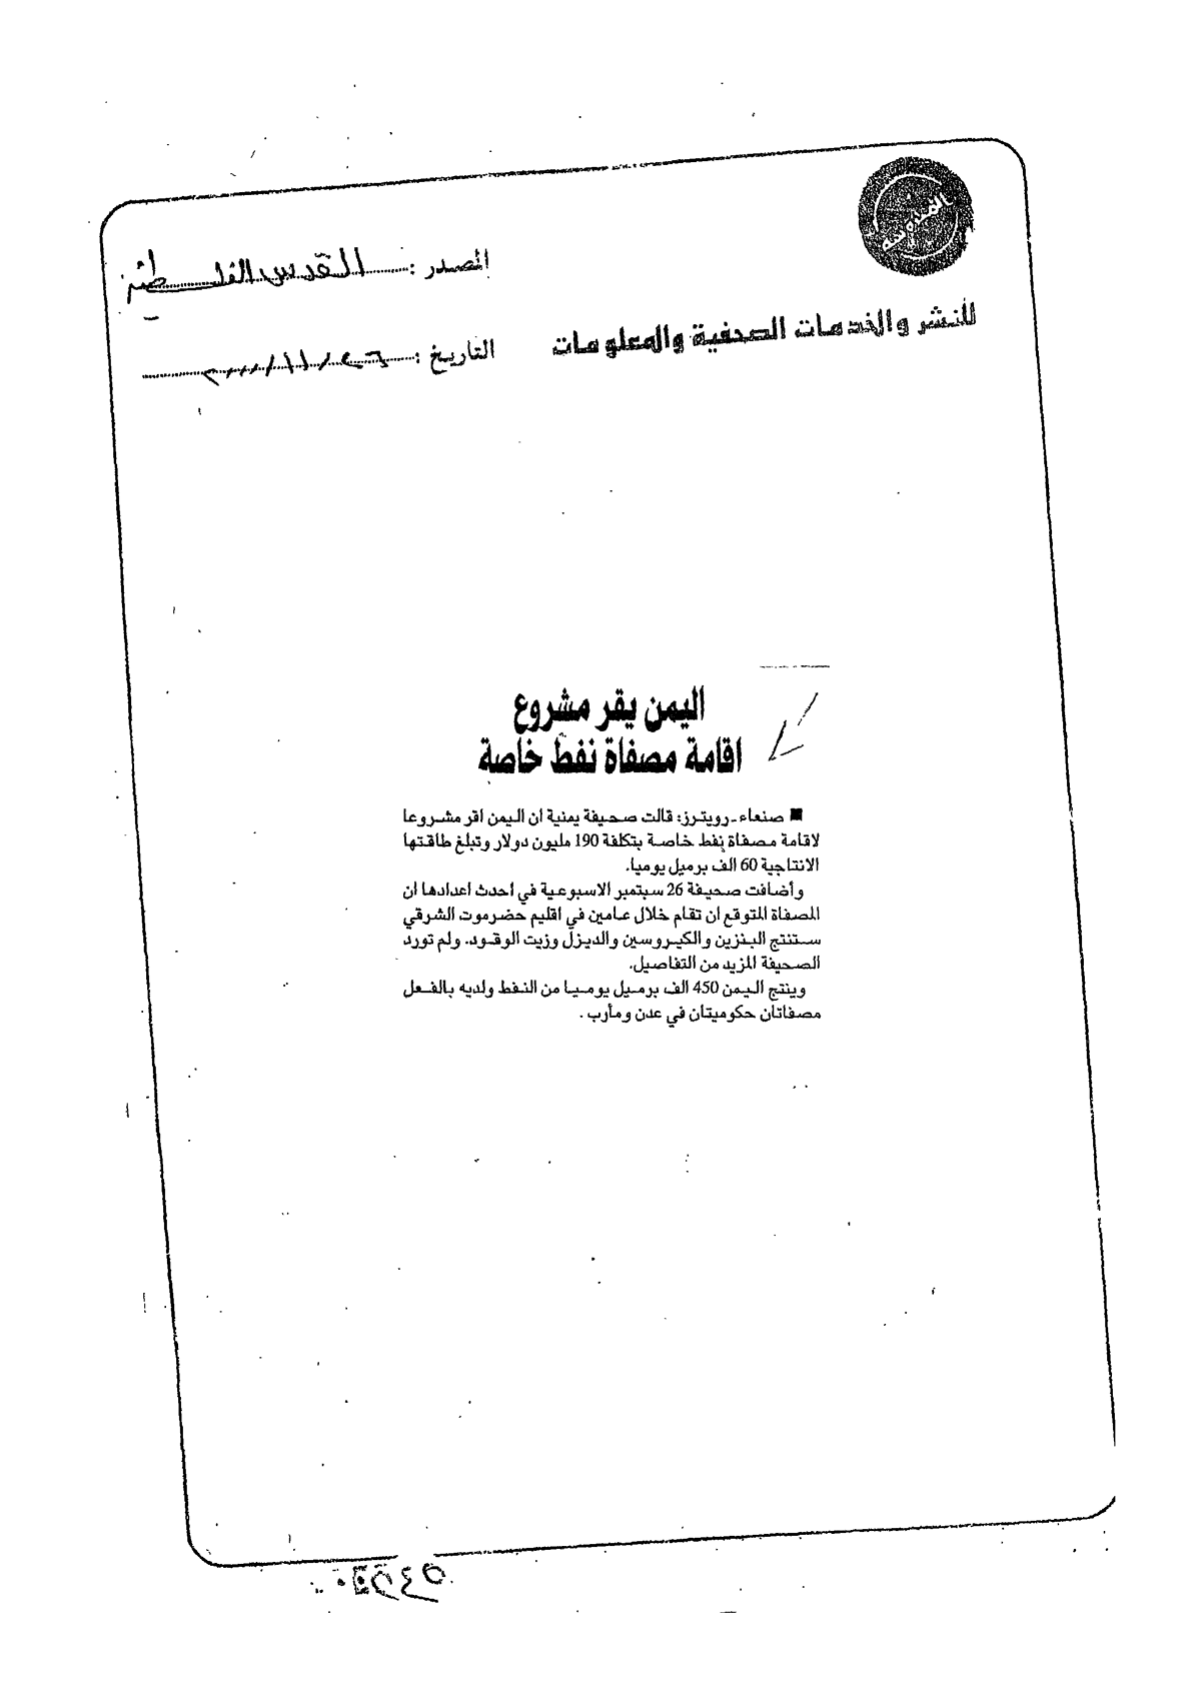 المصدر : القدس الفلسطينية
للنشر والخدمات الصحفية والمعلومات
التاريخ : ٢٠٠٠/١١/٢٦
اليمن يقر مشروع
اقامة مصفاة نفط خاصة
■ صنعاء-رويترز: قالت صحيفة يمنية ان اليمن اقر مشروعا
لاقامة مصفاة نفط خاصة بتكلفة 190 مليون دولار وتبلغ طاقتها
الانتاجية 60 الف برميل يوميا.
وأضافت صحيفة 26 سبتمبر الاسبوعية في أحدث اعدادها ان
المصفاة المتوقع ان تقام خلال عامين في اقليم حضرموت الشرقي
ستنتج البنزين والكيروسين والديزل وزيت الوقود. ولم تورد
الصحيفة المزيد من التفاصيل.
وينتج اليمن 450 الف برميل يوميا من النفط ولديه بالفعل
مصفاتان حكوميتان في عدن ومأرب .